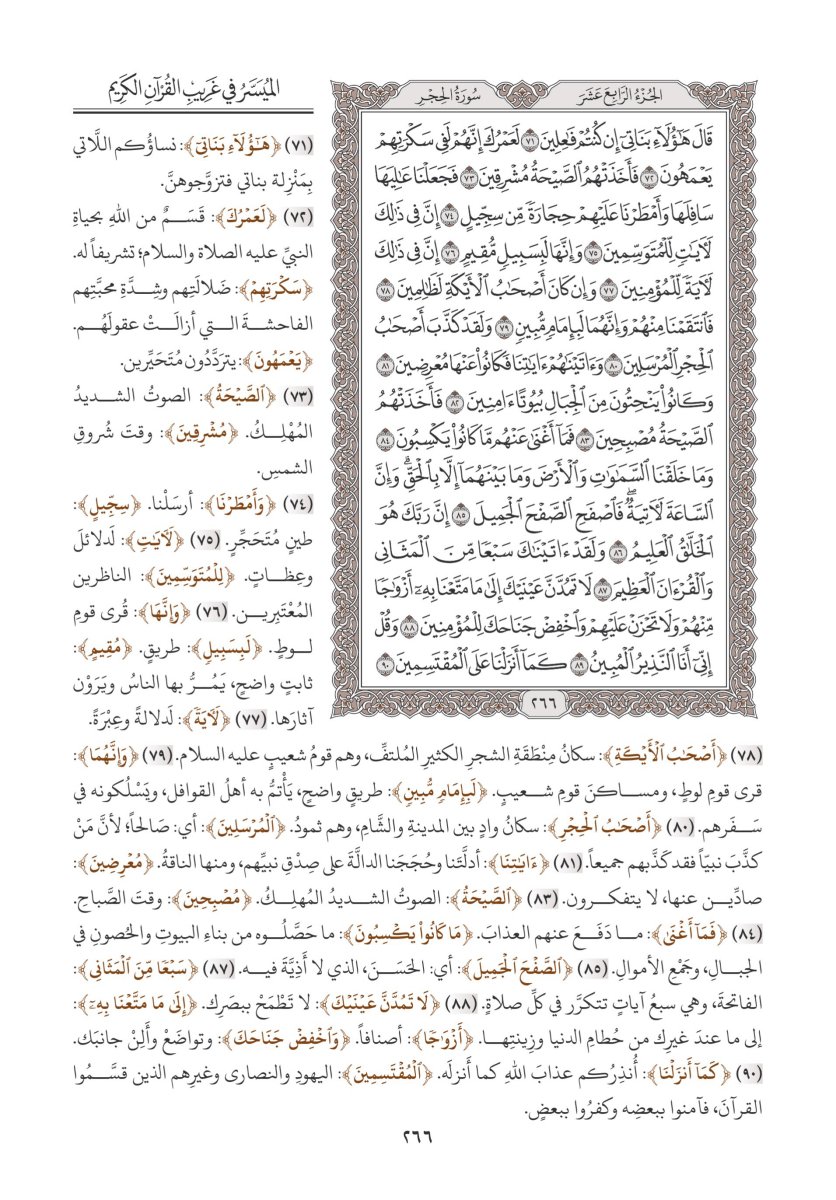 المُيَسَّرُ في غَرِيبِ القُرْآنِ الكَرِيمِ
الجُزْءُ الرَّابِعَ عَشَرَ
سُورَةُ الحِجْرِ
قَالَ هَٰٓؤُلَآءِ بَنَاتِيٓ إِن كُنتُمۡ فَٰعِلِينَ ٧١ لَعَمۡرُكَ إِنَّهُمۡ لَفِي سَكۡرَتِهِمۡ
يَعۡمَهُونَ ٧٢ فَأَخَذَتۡهُمُ ٱلصَّيۡحَةُ مُشۡرِقِينَ ٧٣ فَجَعَلۡنَا عَٰلِيَهَا
سَافِلَهَا وَأَمۡطَرۡنَا عَلَيۡهِمۡ حِجَارَةٗ مِّن سِجِّيلٍ ٧٤ إِنَّ فِي ذَٰلِكَ
لَأٓيَٰتٖ لِّلۡمُتَوَسِّمِينَ ٧٥ وَإِنَّهَا لَبِسَبِيلٖ مُّقِيمٍ ٧٦ إِنَّ فِي ذَٰلِكَ
لَأٓيَةٗ لِّلۡمُؤۡمِنِينَ ٧٧ وَإِن كَانَ أَصۡحَٰبُ ٱلۡأَيۡكَةِ لَظَٰلِمِينَ ٧٨
فَٱنتَقَمۡنَا مِنۡهُمۡ وَإِنَّهُمَا لَبِإِمَامٖ مُّبِينٖ ٧٩ وَلَقَدۡ كَذَّبَ أَصۡحَٰبُ
ٱلۡحِجۡرِ ٱلۡمُرۡسَلِينَ ٨٠ وَءَاتَيۡنَٰهُمۡ ءَايَٰتِنَا فَكَانُواْ عَنۡهَا مُعۡرِضِينَ ٨١
وَكَانُواْ يَنۡحِتُونَ مِنَ ٱلۡجِبَالِ بُيُوتًا ءَامِنِينَ ٨٢ فَأَخَذَتۡهُمُ
ٱلصَّيۡحَةُ مُصۡبِحِينَ ٨٣ فَمَآ أَغۡنَىٰ عَنۡهُم مَّا كَانُواْ يَكۡسِبُونَ ٨٤
وَمَا خَلَقۡنَا ٱلسَّمَٰوَٰتِ وَٱلۡأَرۡضَ وَمَا بَيۡنَهُمَآ إِلَّا بِٱلۡحَقِّۗ وَإِنَّ
ٱلسَّاعَةَ لَأٓتِيَةٞۖ فَٱصۡفَحِ ٱلصَّفۡحَ ٱلۡجَمِيلَ ٨٥ إِنَّ رَبَّكَ هُوَ
ٱلۡخَلَّٰقُ ٱلۡعَلِيمُ ٨٦ وَلَقَدۡ ءَاتَيۡنَٰكَ سَبۡعٗا مِّنَ ٱلۡمَثَانِي
وَٱلۡقُرۡءَانَ ٱلۡعَظِيمَ ٨٧ لَا تَمُدَّنَّ عَيۡنَيۡكَ إِلَىٰ مَا مَتَّعۡنَا بِهِۦٓ أَزۡوَٰجٗا
مِّنۡهُمۡ وَلَا تَحۡزَنۡ عَلَيۡهِمۡ وَٱخۡفِضۡ جَنَاحَكَ لِلۡمُؤۡمِنِينَ ٨٨ وَقُلۡ
إِنِّيٓ أَنَا ٱلنَّذِيرُ ٱلۡمُبِينُ ٨٩ كَمَآ أَنزَلۡنَا عَلَى ٱلۡمُقۡتَسِمِينَ ٩٠
٢٦٦
(٧١) ﴿هَٰٓؤُلَآءِ بَنَاتِيٓ﴾: نساؤُكم اللَّاتي
بِمَنْزِلة بناتي فتزوَّجوهنَّ.
(٧٢) ﴿لَعَمۡرُكَ﴾: قَسَمٌ من اللهِ بحياةِ
النبيِّ عليه الصلاة والسلام؛ تشريفاً له.
﴿سَكۡرَتِهِمۡ﴾: ضلالَتِهم وشِدَّةِ محبَّتِهم
الفاحشةَ التي أزالَتْ عقولَهُم.
﴿يَعۡمَهُونَ﴾: يتردَّدُون مُتَحَيِّرين.
(٧٣) ﴿ٱلصَّيۡحَةُ﴾: الصوتُ الشديدُ
المُهْلِكُ. ﴿مُشۡرِقِينَ﴾: وقتَ شُروقِ
الشمسِ.
(٧٤) ﴿وَأَمۡطَرۡنَا﴾: أرسَلْنا. ﴿سِجِّيلٍ﴾:
طينٍ مُتَحَجِّرٍ. (٧٥) ﴿لَأٓيَٰتٖ﴾: لَدلائلَ
وعِظاتٍ. ﴿لِّلۡمُتَوَسِّمِينَ﴾: الناظرين
المُعْتَبِرين. (٧٦) ﴿وَإِنَّهَا﴾: قُرى قومِ
لوطٍ. ﴿لَبِسَبِيلٖ﴾: طريقٍ. ﴿مُّقِيمٍ﴾:
ثابتٍ واضحٍ، يَمُرُّ بها الناسُ ويَرَوْن
آثارَها. (٧٧) ﴿لَأٓيَةٗ﴾: لَدلالةً وعِبْرَةً.
(٧٨) ﴿أَصۡحَٰبُ ٱلۡأَيۡكَةِ﴾: سكانُ مِنْطَقَةِ الشجرِ الكثيرِ المُلتفِّ، وهم قومُ شعيبٍ عليه السلام. (٧٩) ﴿وَإِنَّهُمَا﴾:
قرى قومِ لوطٍ، ومساكنَ قومِ شعيبٍ. ﴿لَبِإِمَامٖ مُّبِينٖ﴾: طريقٍ واضحٍ، يَأْتمُّ به أهلُ القوافل، ويَسْلُكونه في
سَفَرهم. (٨٠) ﴿أَصۡحَٰبُ ٱلۡحِجۡرِ﴾: سكانُ وادٍ بين المدينةِ والشَّامِ، وهم ثمودُ. ﴿ٱلۡمُرۡسَلِينَ﴾: أي: صَالحاً؛ لأنَّ مَنْ
كذَّبَ نبيّاً فقد كذَّبهم جميعاً. (٨١) ﴿ءَايَٰتِنَا﴾: أدلَّتَنا وحُجَجَنا الدالَّةَ على صِدْقِ نبيِّهم، ومنها الناقةُ. ﴿مُعۡرِضِينَ﴾:
صادِّين عنها، لا يتفكرون. (٨٣) ﴿ٱلصَّيۡحَةُ﴾: الصوتُ الشديدُ المُهلِكُ. ﴿مُصۡبِحِينَ﴾: وقتَ الصَّباحِ.
(٨٤) ﴿فَمَآ أَغۡنَىٰ﴾: ما دَفَعَ عنهم العذابَ. ﴿مَا كَانُواْ يَكۡسِبُونَ﴾: ما حَصَّلُوه من بناءِ البيوتِ والحُصونِ في
الجبالِ، وجَمْعِ الأموالِ. (٨٥) ﴿ٱلصَّفۡحَ ٱلۡجَمِيلَ﴾: أي: الحَسَنَ، الذي لا أَذِيَّةَ فيه. (٨٧) ﴿سَبۡعٗا مِّنَ ٱلۡمَثَانِي﴾:
الفاتحةَ، وهي سبعُ آياتٍ تتكرَّر في كلِّ صلاةٍ. (٨٨) ﴿لَا تَمُدَّنَّ عَيۡنَيۡكَ﴾: لا تَطْمَحْ ببصَرِك. ﴿إِلَىٰ مَا مَتَّعۡنَا بِهِۦٓ﴾:
إلى ما عندَ غيرِك من حُطامِ الدنيا وزِينتِها. ﴿أَزۡوَٰجٗا﴾: أصنافاً. ﴿وَٱخۡفِضۡ جَنَاحَكَ﴾: وتواضَعْ وأَلِنْ جانبَك.
(٩٠) ﴿كَمَآ أَنزَلۡنَا﴾: أُنذِرُكم عذابَ اللهِ كما أنزلَه. ﴿ٱلۡمُقۡتَسِمِينَ﴾: اليهودِ والنصارى وغيرِهم الذين قسَّمُوا
القرآنَ، فآمنوا ببعضِه وكفرُوا ببعضٍ.
٢٦٦